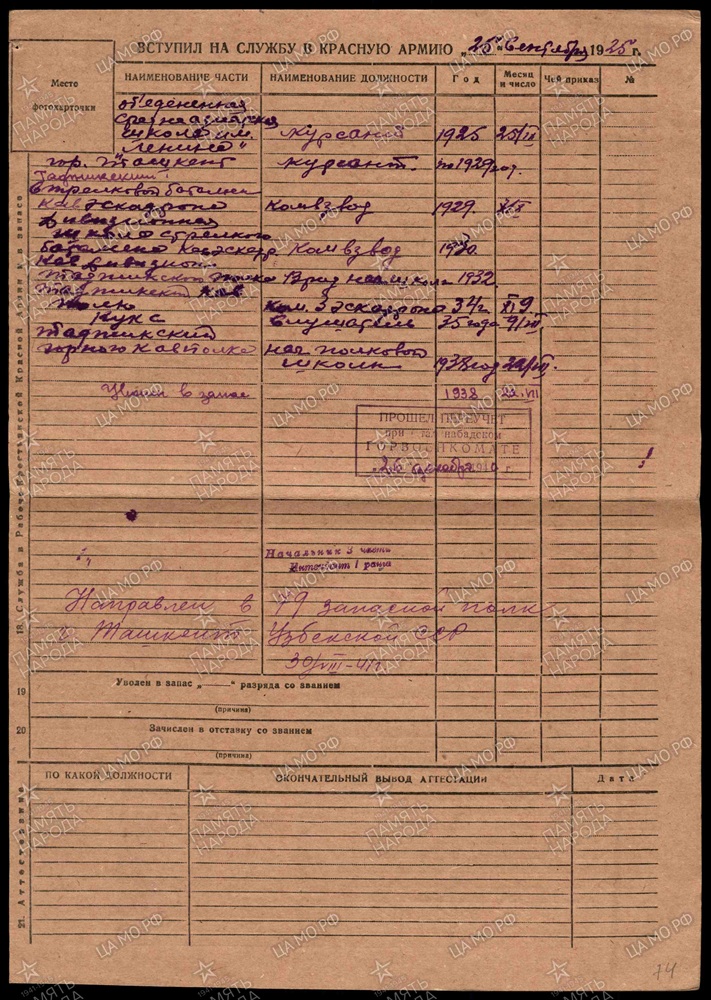 ВСТУПИЛ НА СЛУЖБУ В КРАСНУЮ АРМИЮ „25“ Сентября 1925 г.
Место фотокарточки
НАИМЕНОВАНИЕ ЧАСТИ НАИМЕНОВАНИЕ ДОЛЖНОСТИ Год Месяц и число Чей приказ №
обеденная
среднеазиатская
школа им. курсант 1925 25/IX
Ленина"
гор. Ташкент курсант. по 1929 год.
Таджикский
Стрелковой баталион
Кавэскадрона Комвзвод 1929. X
Дивизионная
школа стрелков
баталиона Кавэскадр. Комвзвод 1930.
Кав дивизион
таджикского полка Врид нач школы 1932.
Таджикский Кав
полк Ком. 3 эскадрона 34г XI 9
Кукс Слушатель 35 года 9/VII
Таджикский
горного кавполка нач полковой
школы 1938 год 22/VII.
Уволен в запас 1938 22.VII
ПРОШЕЛ ПЕРЕУЧЕТ
при набадском
ГОРВОЕНКОМАТЕ
26 декабря г.
Начальник 3 части
Интендант 1 ранга
Направлен в 79 запасной полк
г. Ташкент Узбекской ССР
30/VIII-41г.
18. Служба в Рабоче-Крестьянской Красной Армии и в запасе
19 Уволен в запас „ “ разряда со званием
(причина)
20 Зачислен в отставку со званием
(причина)
21. Аттестование
ПО КАКОЙ ДОЛЖНОСТИ ОКОНЧАТЕЛЬНЫЙ ВЫВОД АТТЕСТАЦИИ Дата
74
ПАМЯТЬ НАРОДА
ЦА МО РФ